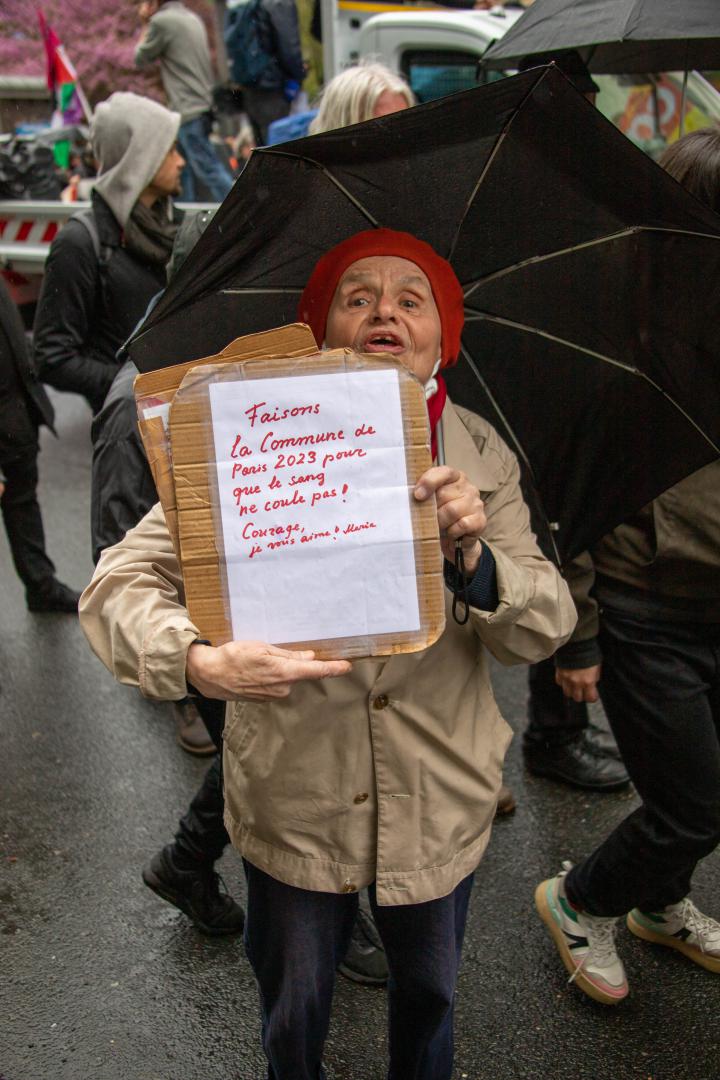 Faisons
la Commune de
Paris 2023 pour
que le sang
ne coule pas!
Courage,
je vous aime! Marie